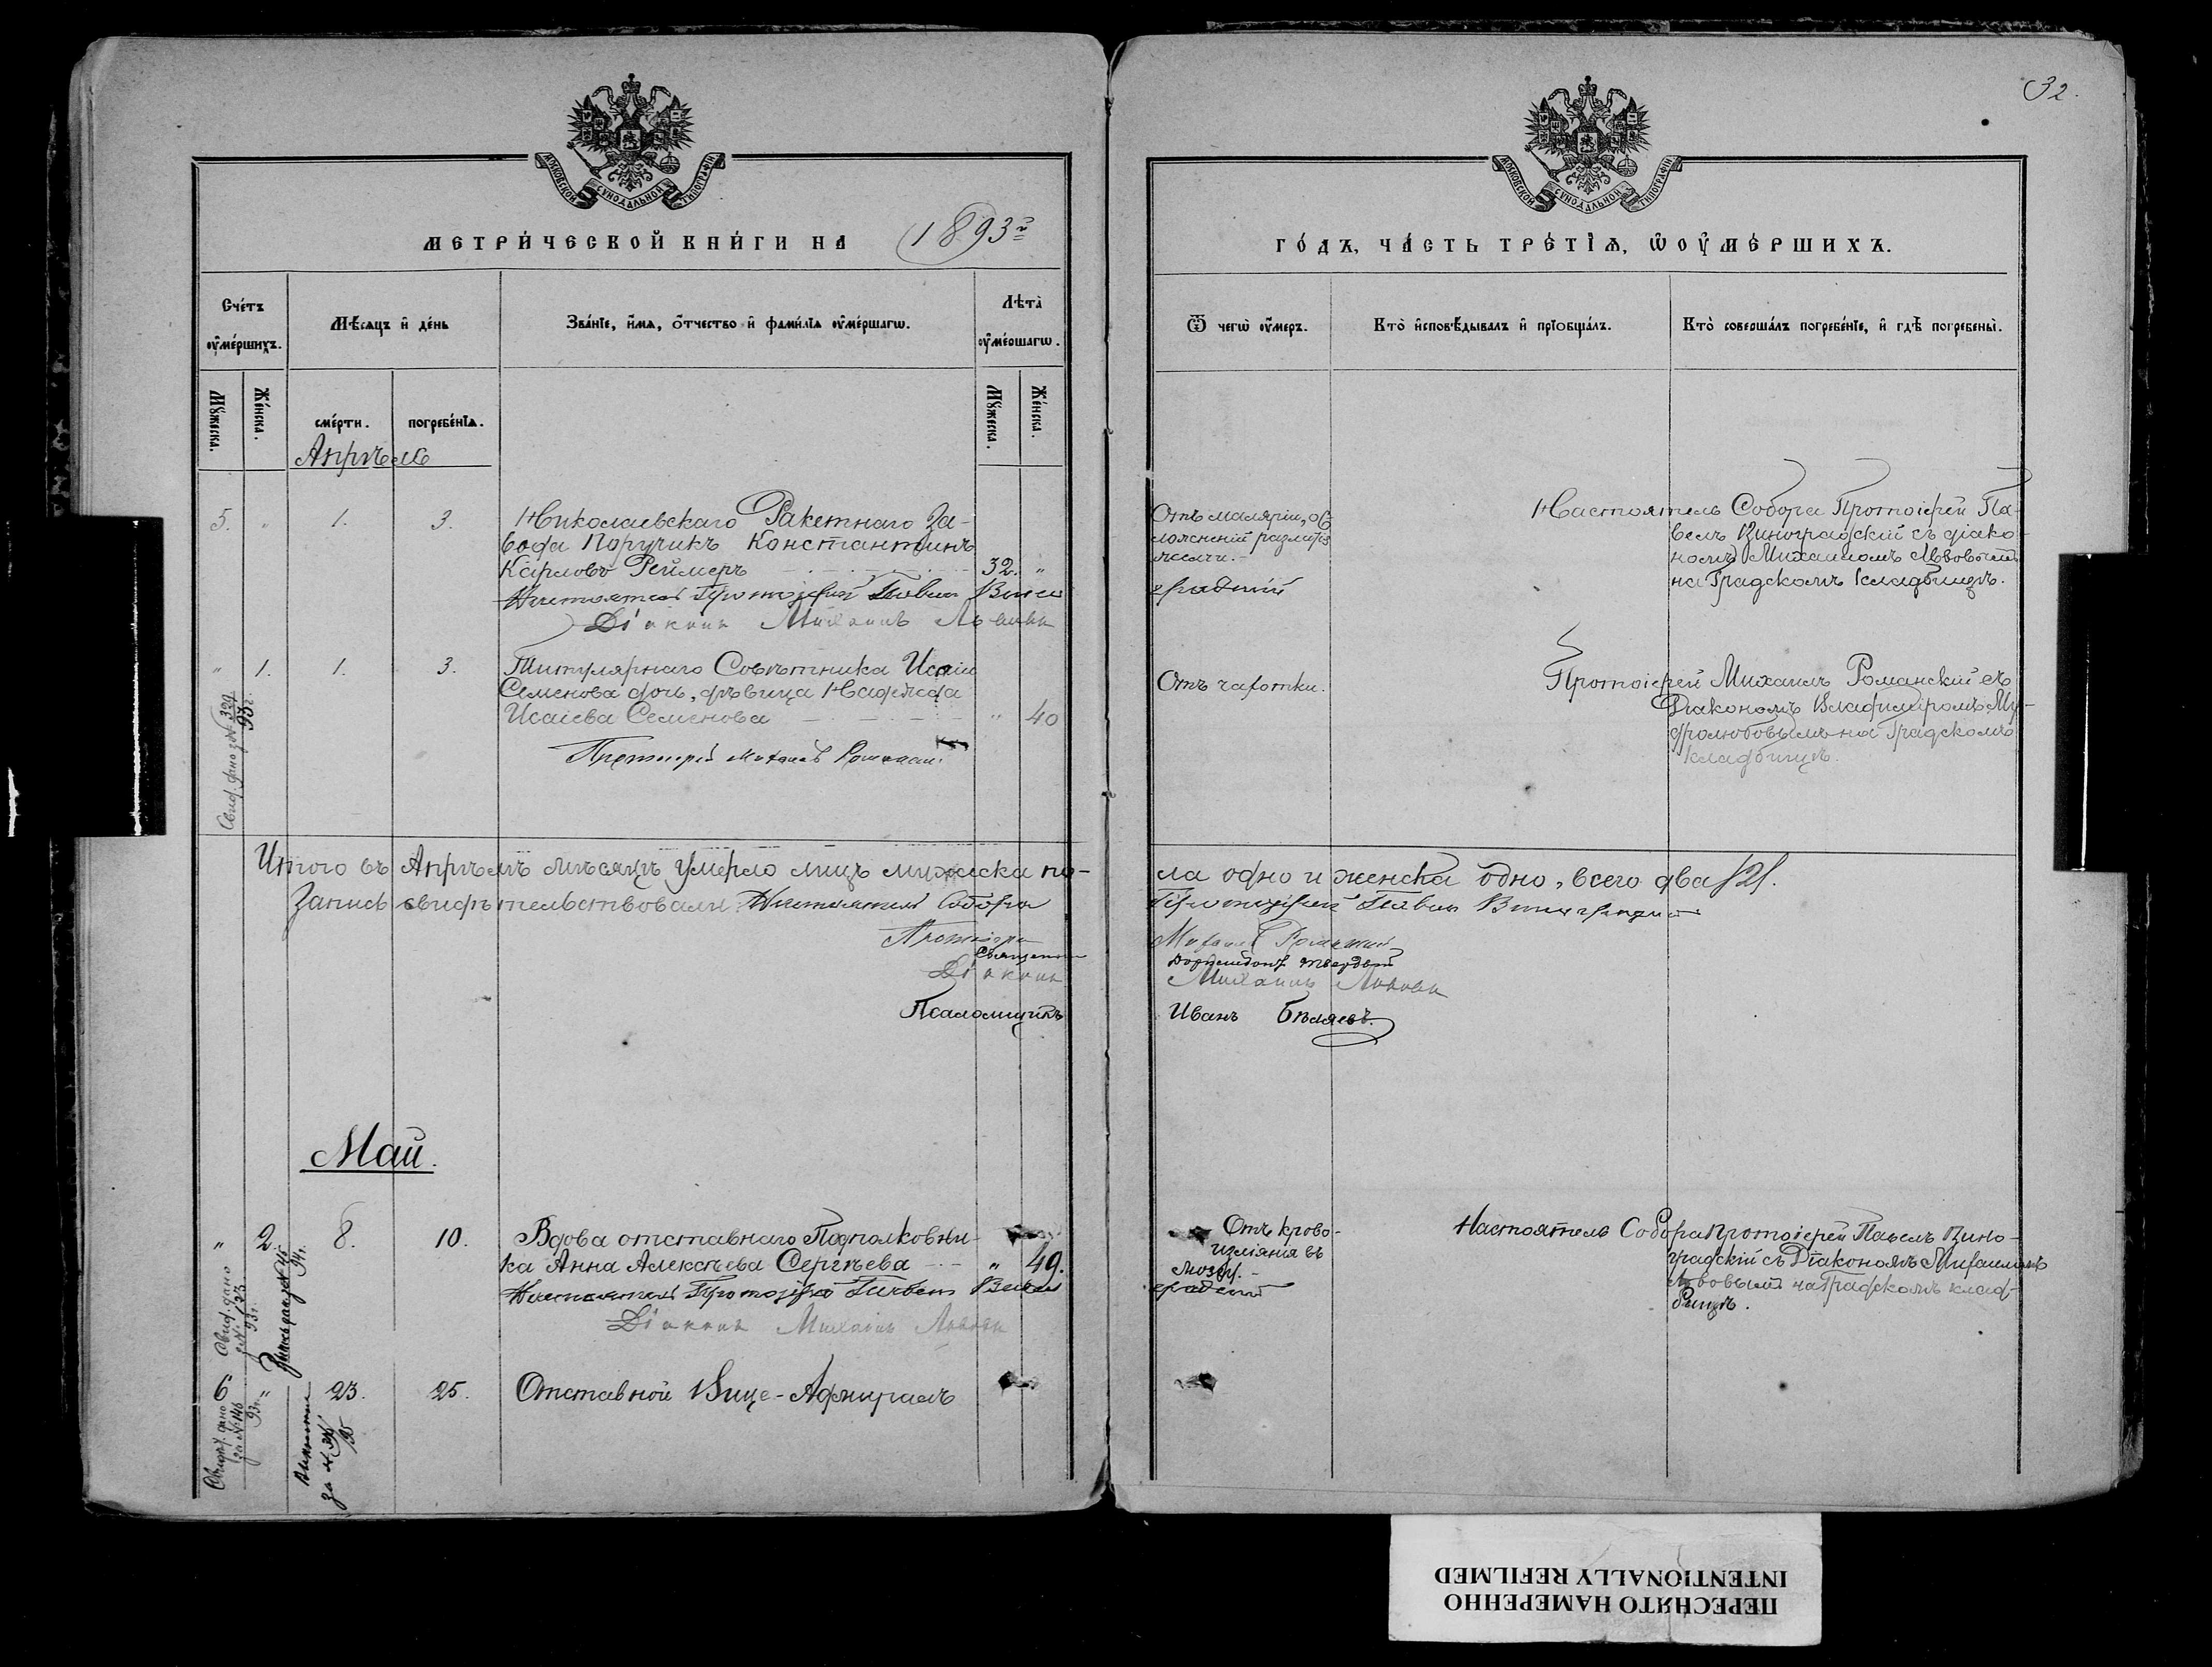 32.
МОСКОВСКОЙ СѴНОДАЛЬНОЙ ТИПОГРАФІИ
МОСКОВСКОЙ СѴНОДАЛЬНОЙ ТИПОГРАФІИ
МЕТРИ́ЧЕСКОЙ КНИ́ГИ НА 1893 г.
ГО́ДЪ, ЧА́СТЬ ТРЕ́ТІѦ, Ѡ ОУ҆МЕ́РШИХЪ.
Сче́тъ оу҆ме́ршихъ.
Мꙋ́жеска.
Же́нска.
Мѣ́сѧцъ и҆ де́нь
сме́рти.
погребе́нїѧ.
Зва́нїе, и҆́мѧ, ѻ҆́тчество и҆ фами́лїѧ оу҆ме́ршагѡ.
Лѣта̀ оу҆ме́ршагѡ.
Мꙋ́жеска.
Же́нска.
Ѿ чегѡ̀ оу҆́меръ.
Кто̀ и҆сповѣ́дывалъ и҆ прїѡбща́лъ.
Кто̀ соверша́лъ погребе́нїе, и҆ гдѣ̀ погребены̀.
Апрѣль
5. " 1. 3. Николаевскаго Ракетнаго За-
вода Поручикъ Константинъ
Карловъ Реймеръ 32. "
Настоятель Протоіерей Павелъ Вино
градскій
Діаконъ Михаилъ Львовъ
Отъ маляріи, ос
ложненной разлитіе
желчи.
Настоятель Собора Протоіерей Па-
велъ Виноградскій съ діако-
номъ Михаиломъ Львовымъ
на Градскомъ кладбищѣ.
" 1. 1. 3. Титулярнаго Совѣтника Исаіи
Семенова дочь, дѣвица Надежда
Исаіева Семенова " 40
Протоіерей Михаилъ Романскій
Отъ чахотки.
Протоіерей Михаилъ Романскій съ
Діакономъ Владиміромъ Му-
дролюбовымъ на Градскомъ
кладбищѣ.
Свид. дано за № 329
93 г.
Итого въ Апрѣлѣ мѣсяцѣ умерло лицъ мужеска по-
ла одно и женска одно, всего два /2/.
Запись свидѣтельствовали: Настоятель Собора
Протоіерей Павелъ Виноградскій
Протоіерей Михаилъ Романскій
Священникъ
Діаконъ Михаилъ Львовъ
Псаломщикъ Иванъ Бѣляевъ.
Май.
" 2. 8. 10. Вдова отставнаго Подполковни-
ка Анна Алексѣева Сергѣева " 49.
Настоятель Протоіерей Павелъ Вино
градскій
Діаконъ Михаилъ Львовъ
Отъ крово-
изліянія въ
мозгъ.
Настоятель Собора Протоіерей Павелъ Вино-
градскій съ Діакономъ Михаиломъ
Львовымъ на Градскомъ клад-
бищѣ.
Свид. дано
за № 123
93 г.
94 г.
6 " 23. 25. Отставной Вице-Адмиралъ
Свид. дано
за № 146
93 г.
за №
95
ПЕРЕСНЯТО НАМЕРЕННО
INTENTIONALLY REFILMED